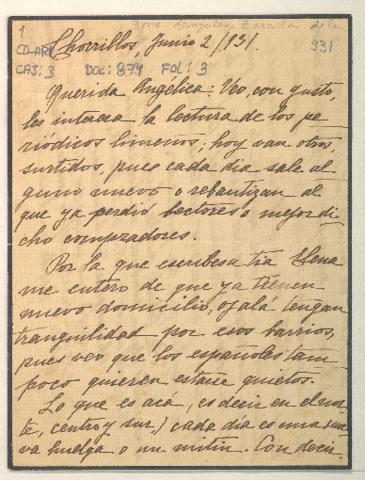 1
Chorrillos, Junio 2/931.
931
CO-AR
CAJ: 3 DOC: 879 FOL: 3
Querida Angélica: Veo, con gusto,
les interesa la lectura de los pe
riódicos limeños; hoy van otros,
surtidos, pues cada dia sale al
guno nuevo o rebautizan al
que ya perdió lectores o mejor di
cho compradores.
Por la que escribes a tia Elena
me entero de que ya tienen
nuevo domicilio, ojalá tengan
tranquilidad por esos barrios,
pues veo que los españoles tam
poco quieren estarse quietos.
Lo que es acá, es decir en el nor
te, centro y sur, cada dia es una nue
va huelga o un mitin. Con decir